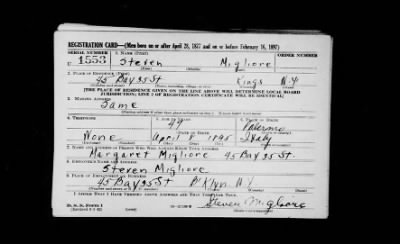 REGISTRATION CARD—(Men born on or after April 28, 1877 and on or before February 16, 1897)
SERIAL NUMBER 1. NAME (Print) ORDER NUMBER
U 1553 Steven Migliore
(First) (Middle) (Last)
2. PLACE OF RESIDENCE (Print)
45 Bay 35 St Kings N.Y.
[THE PLACE OF RESIDENCE GIVEN ON THE LINE ABOVE WILL DETERMINE LOCAL BOARD
JURISDICTION; LINE 2 OF REGISTRATION CERTIFICATE WILL BE IDENTICAL]
3. MAILING ADDRESS
Same
4. TELEPHONE 5. AGE IN YEARS 6. PLACE OF BIRTH
49 Palermo
DATE OF BIRTH
None Apr. 8 Italy
7. NAME AND ADDRESS OF PERSON WHO WILL ALWAYS KNOW YOUR ADDRESS
Margaret Migliore 45 Bay 35 St.
8. EMPLOYER'S NAME AND ADDRESS
Steven Migliore
9. PLACE OF EMPLOYMENT OR BUSINESS
45 Bay 35 St B'klyn N.Y.
I AFFIRM THAT I HAVE VERIFIED ABOVE ANSWERS AND THAT THEY ARE TRUE.
D. S. S. Form 1
Steven Migliore